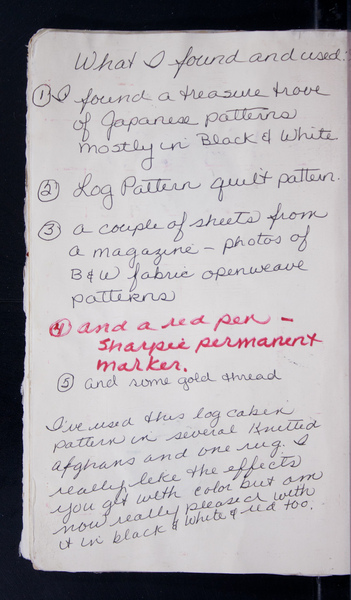 What I found and used:
① I found a treasure trove
of Japanese patterns
mostly in Black & White
② Log Pattern quilt pattern.
③ a couple of sheets from
a magazine – photos of
B&W fabric openweave
patterns
④ and a red pen –
Sharpie permanent
marker.
⑤ and some gold thread
I've used this log cabin
pattern in several Knitted
Afghans and one rug. I
really like the effects
you get with color but am
now really pleased with
it in black & white & red too.